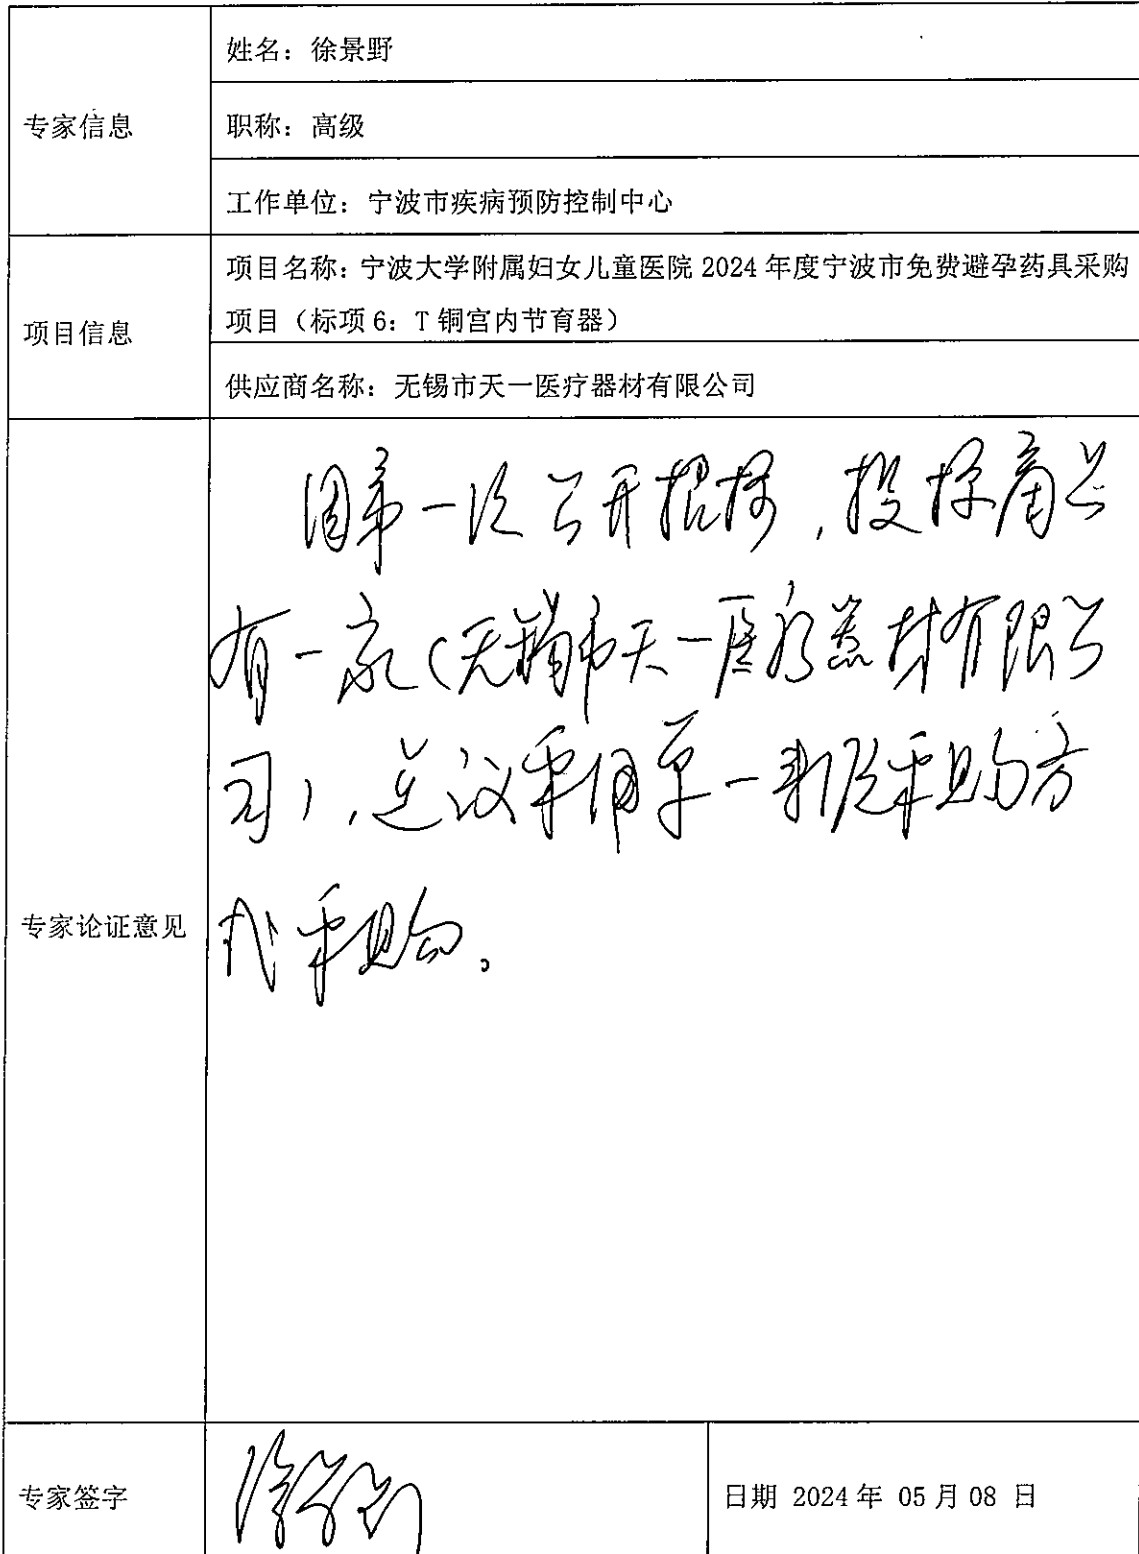 姓名：徐景野
专家信息
职称：高级
工作单位：宁波市疾病预防控制中心
项目名称：宁波大学附属妇女儿童医院 2024 年度宁波市免费避孕药具采购
项目（标项 6：T 铜宫内节育器）
项目信息
供应商名称：无锡市天一医疗器材有限公司
因第一次公开招标，投标商只
有一家（无锡市天一医疗器材有限公
司），建议采用单一来源采购方
式采购。
专家论证意见
专家签字
徐景野
日期 2024 年 05 月 08 日